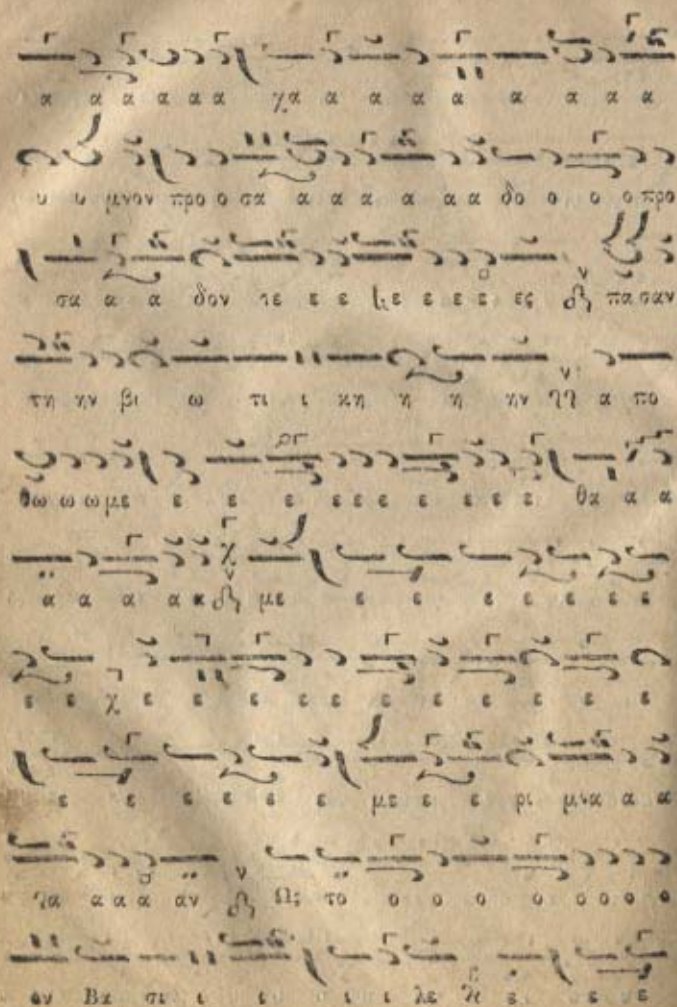 α α α α α α χα α α α α α α α α
υ υ μνον προ ο σα α α α α α α δο ο ο ο προ
σα α α α δον τε ε ε ε ε ε ε ες πα σαν
τη ην βι ω τι ι κη η η ην α πο
θω ω ω με ε ε ε ε ε ε ε ε ε ε θα α α
α α α α α με ε ε ε ε ε ε ε
ε ε χ ε ε ε ε ε ε ε ε ε ε ε
ε ε ε ε ε ε με ε ε ρι μνα α α
α α α αν Ως το ο ο ο ο ο ο ο
ον Βα σι ι ι ι ι λε ε ε ε